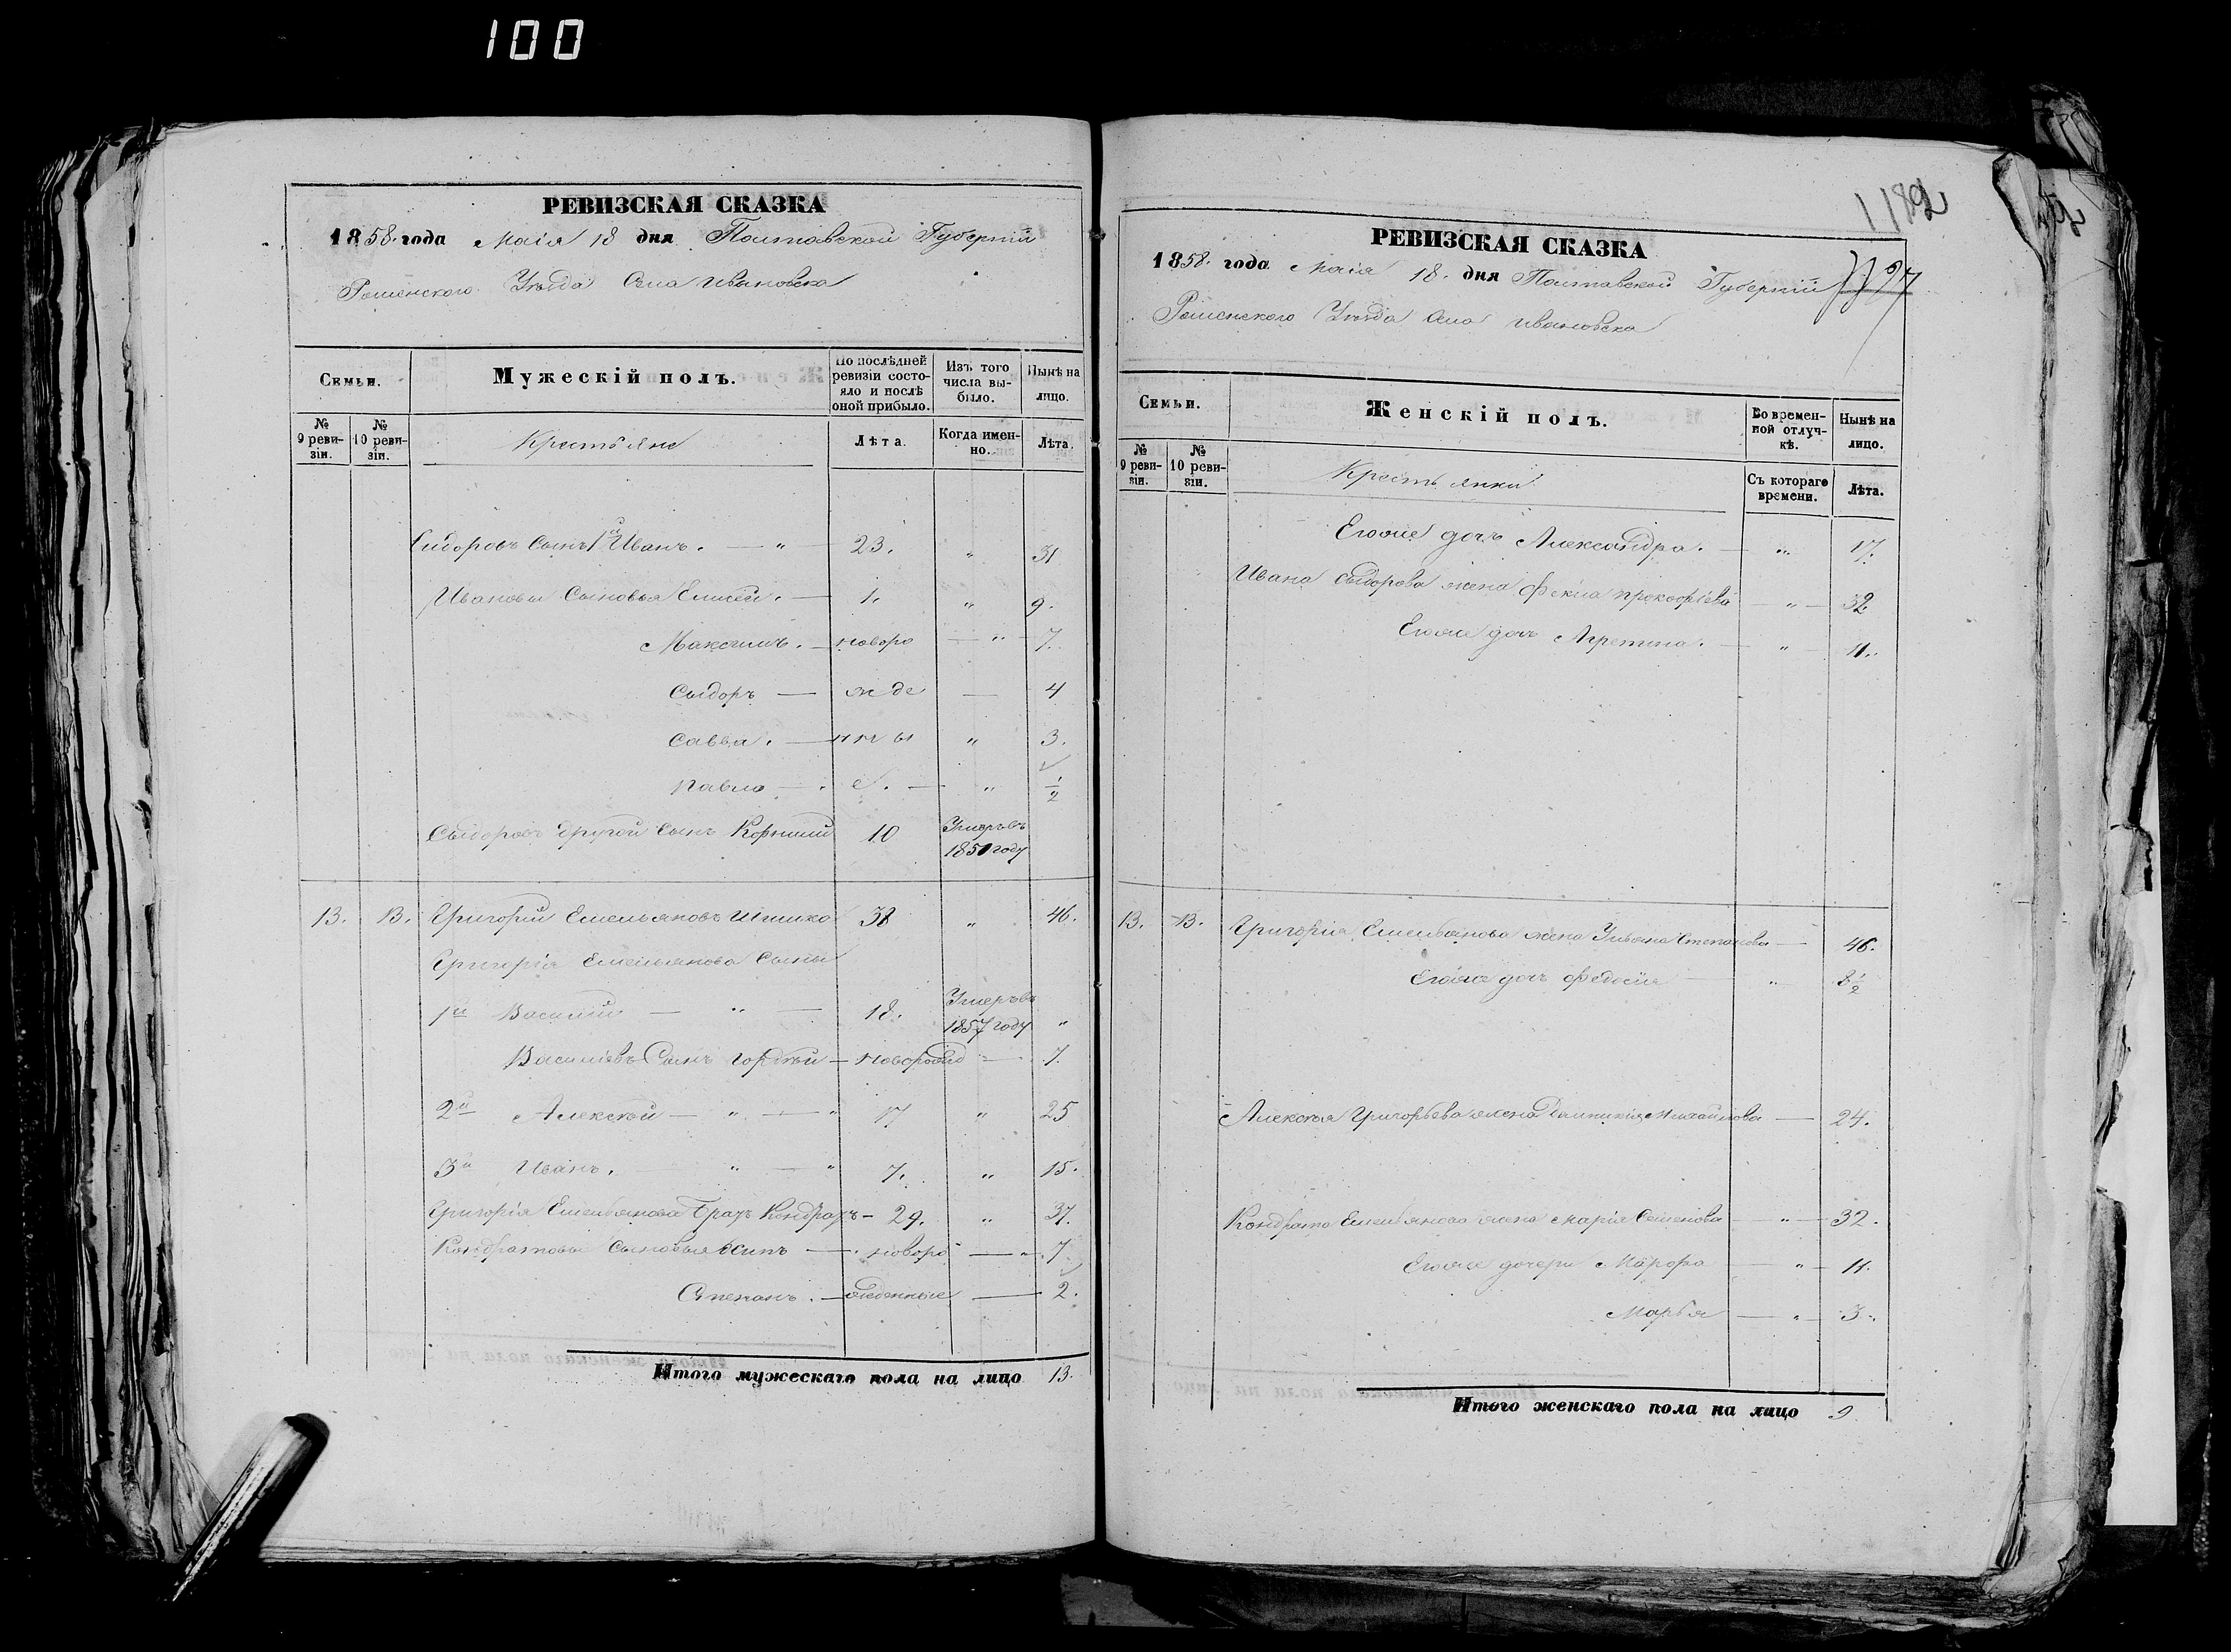 100
РЕВИЗСКАЯ СКАЗКА
1858. года Маія 18 дня Полтавской Губерніи
Роменского Уѣзда Села Ивановска
Семьи.
Мужескій полъ.
По послѣдней ревизіи состо-
яло и послѣ
оной прибыло.
Изъ того
числа вы-
было.
Нынѣ на
лицо.
№
9 реви-
зіи.
№
10 реви-
зіи.
Крестьяне
Лѣта.
Когда имен-
но.
Лѣта.
Сидоровъ Сынъ 1й Иванъ. — " — 23. " 31
Ивановы Сыновья Елисей. — 1. " 9.
Максимъ. — новоро — " — 7.
Сыдоръ — жде — 4
Савва. — нны " 3.
Павло — е. — " 1/2
Сыдоровъ другой Сынъ Корнилий 10 Умеръ въ
1851 году
13. 13. Григорій Емельяновъ 38 " 46.
Григорія Емельянова Сыны
1й Василий — " — 18. Умеръ въ
1857 году "
Василіевъ Сынъ Гордѣй — новорожд — 7.
2й Алексѣй — " — " 17 " 25
3й Иванъ. " — " 7. " 15.
Григорія Емельянова Братъ Кондратъ — 29. " 37.
Кондратовы Сыновья Осипъ — новоро — " 7
Степанъ. — жденные — 2.
Итого мужескаго пола на лицо 13.
1182
РЕВИЗСКАЯ СКАЗКА
1858. года Маія 18. дня Полтавской Губерніи
Роменского Уѣзда Села Ивановска
Семьи.
Женскій полъ.
Во времен-
ной отлуч-
кѣ.
Нынѣ на
лицо.
№
9 реви-
зіи.
№
10 реви-
зіи.
Крестьянки
Съ котораго
времени.
Лѣта.
Егоже дочь Александра. — " 17.
Ивана Сыдорова жена Фекла Прокофіева — " — 32
Егоже дочь — " — 11.
13. 13. Григорія Емельянова жена Ульяна Степанова — 46.
Егоже дочь Федосія " 8 1/2
Алексѣя Григорьева жена Михайлова — 24.
Кондрата Емельянова жена Марія Семенова — " — 32.
Егоже дочери Марфа — " — 11.
Марья — " — 3.
Итого женскаго пола на лицо 9